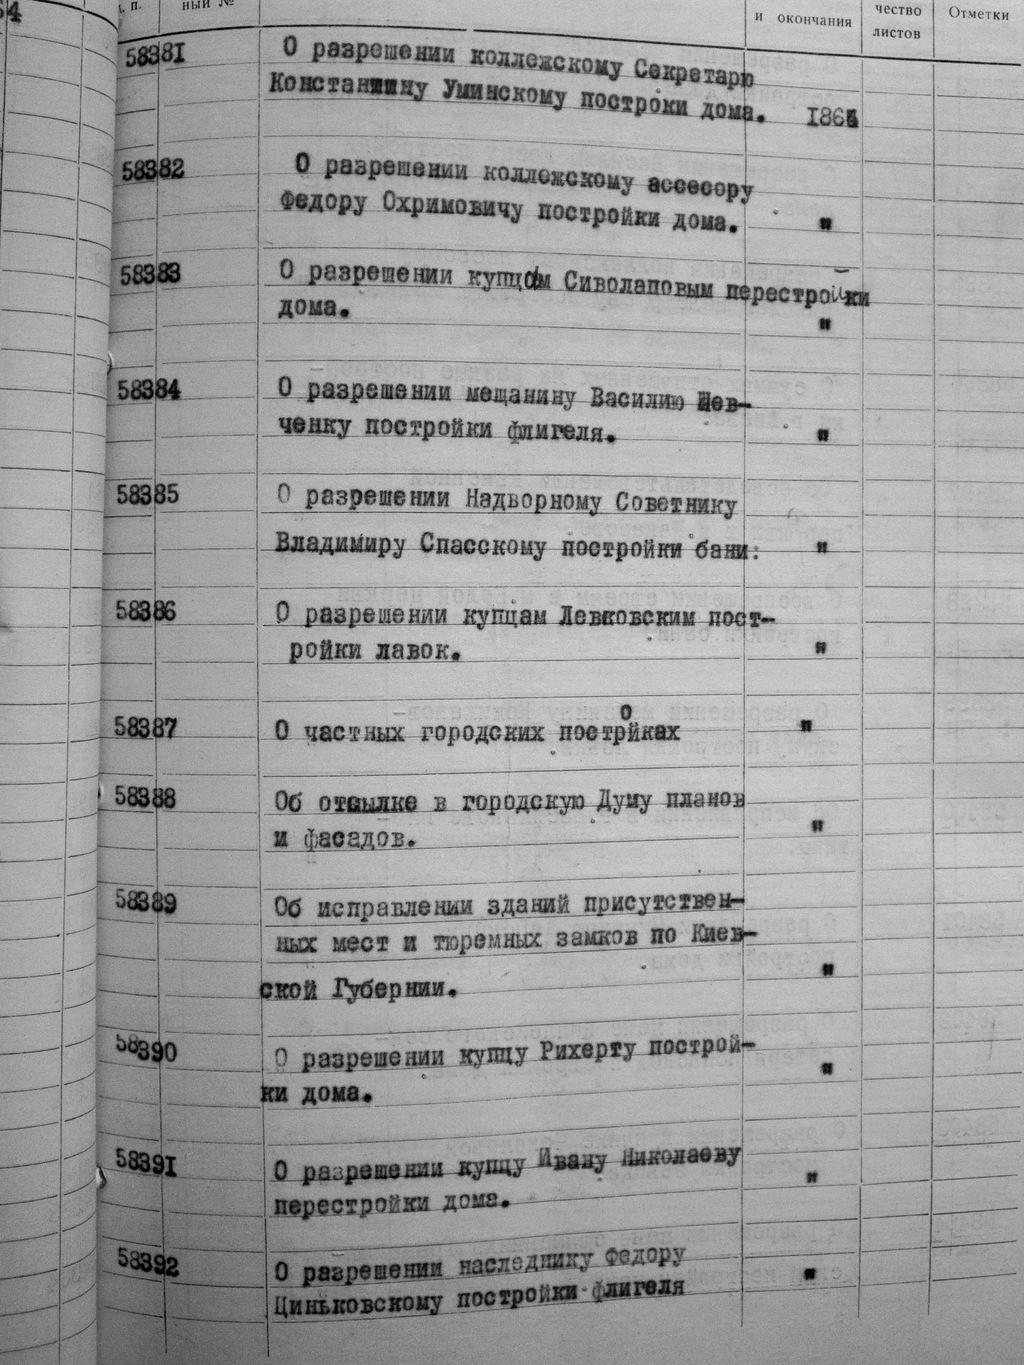 64
п. ный № и окончания чество листов Отметки
58381 О разрешении коллежскому Секретарю
Константину Уминскому постройки дома. 1864
58382 О разрешении коллежскому ассесору
Федору Охримовичу постройки дома. "
58383 О разрешении купцам Сиволаповым перестройки
дома. "
58384 О разрешении мещанину Василию Шев-
ченку постройки флигеля. "
58385 О разрешении Надворному Советнику
Владимиру Спасскому постройки бани: "
58386 О разрешении купцам Левковским пост-
ройки лавок. "
58387 О частных городских постройках "
58388 Об отсылке в городскую Думу планов
и фасадов. "
58389 Об исправлении зданий присутствен-
ных мест и тюремных замков по Киев-
ской Губернии. "
58390 О разрешении купцу Рихерту построй-
ки дома. "
58391 О разрешении купцу Ивану Николаеву
перестройки дома. "
58392 О разрешении наследнику Федору
Циньковскому постройки флигеля "